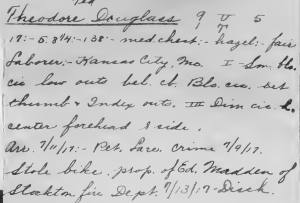 Ted
Theodore Douglass 9 U 5
17:- 5.8 3/4:- 138:- med chest:- hazel:- fair
Laborer:- Kansas City, Mo. I - Sm. blo.
cic low outs bel. cb. Blo. cic. bet
thumb & Index outs. III Dim cic. h.
center forehead & side.
Arr. 7/11/17:- Pet. Larc. crime 7/9/17.
Stole bike. prop. of Ed. Madden of
Stockton fire Dept. 7/13/17- Disch.